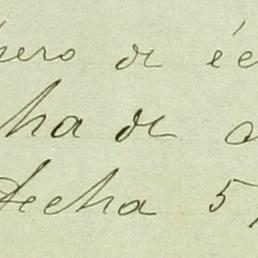 pero de
ha de
fecha 5